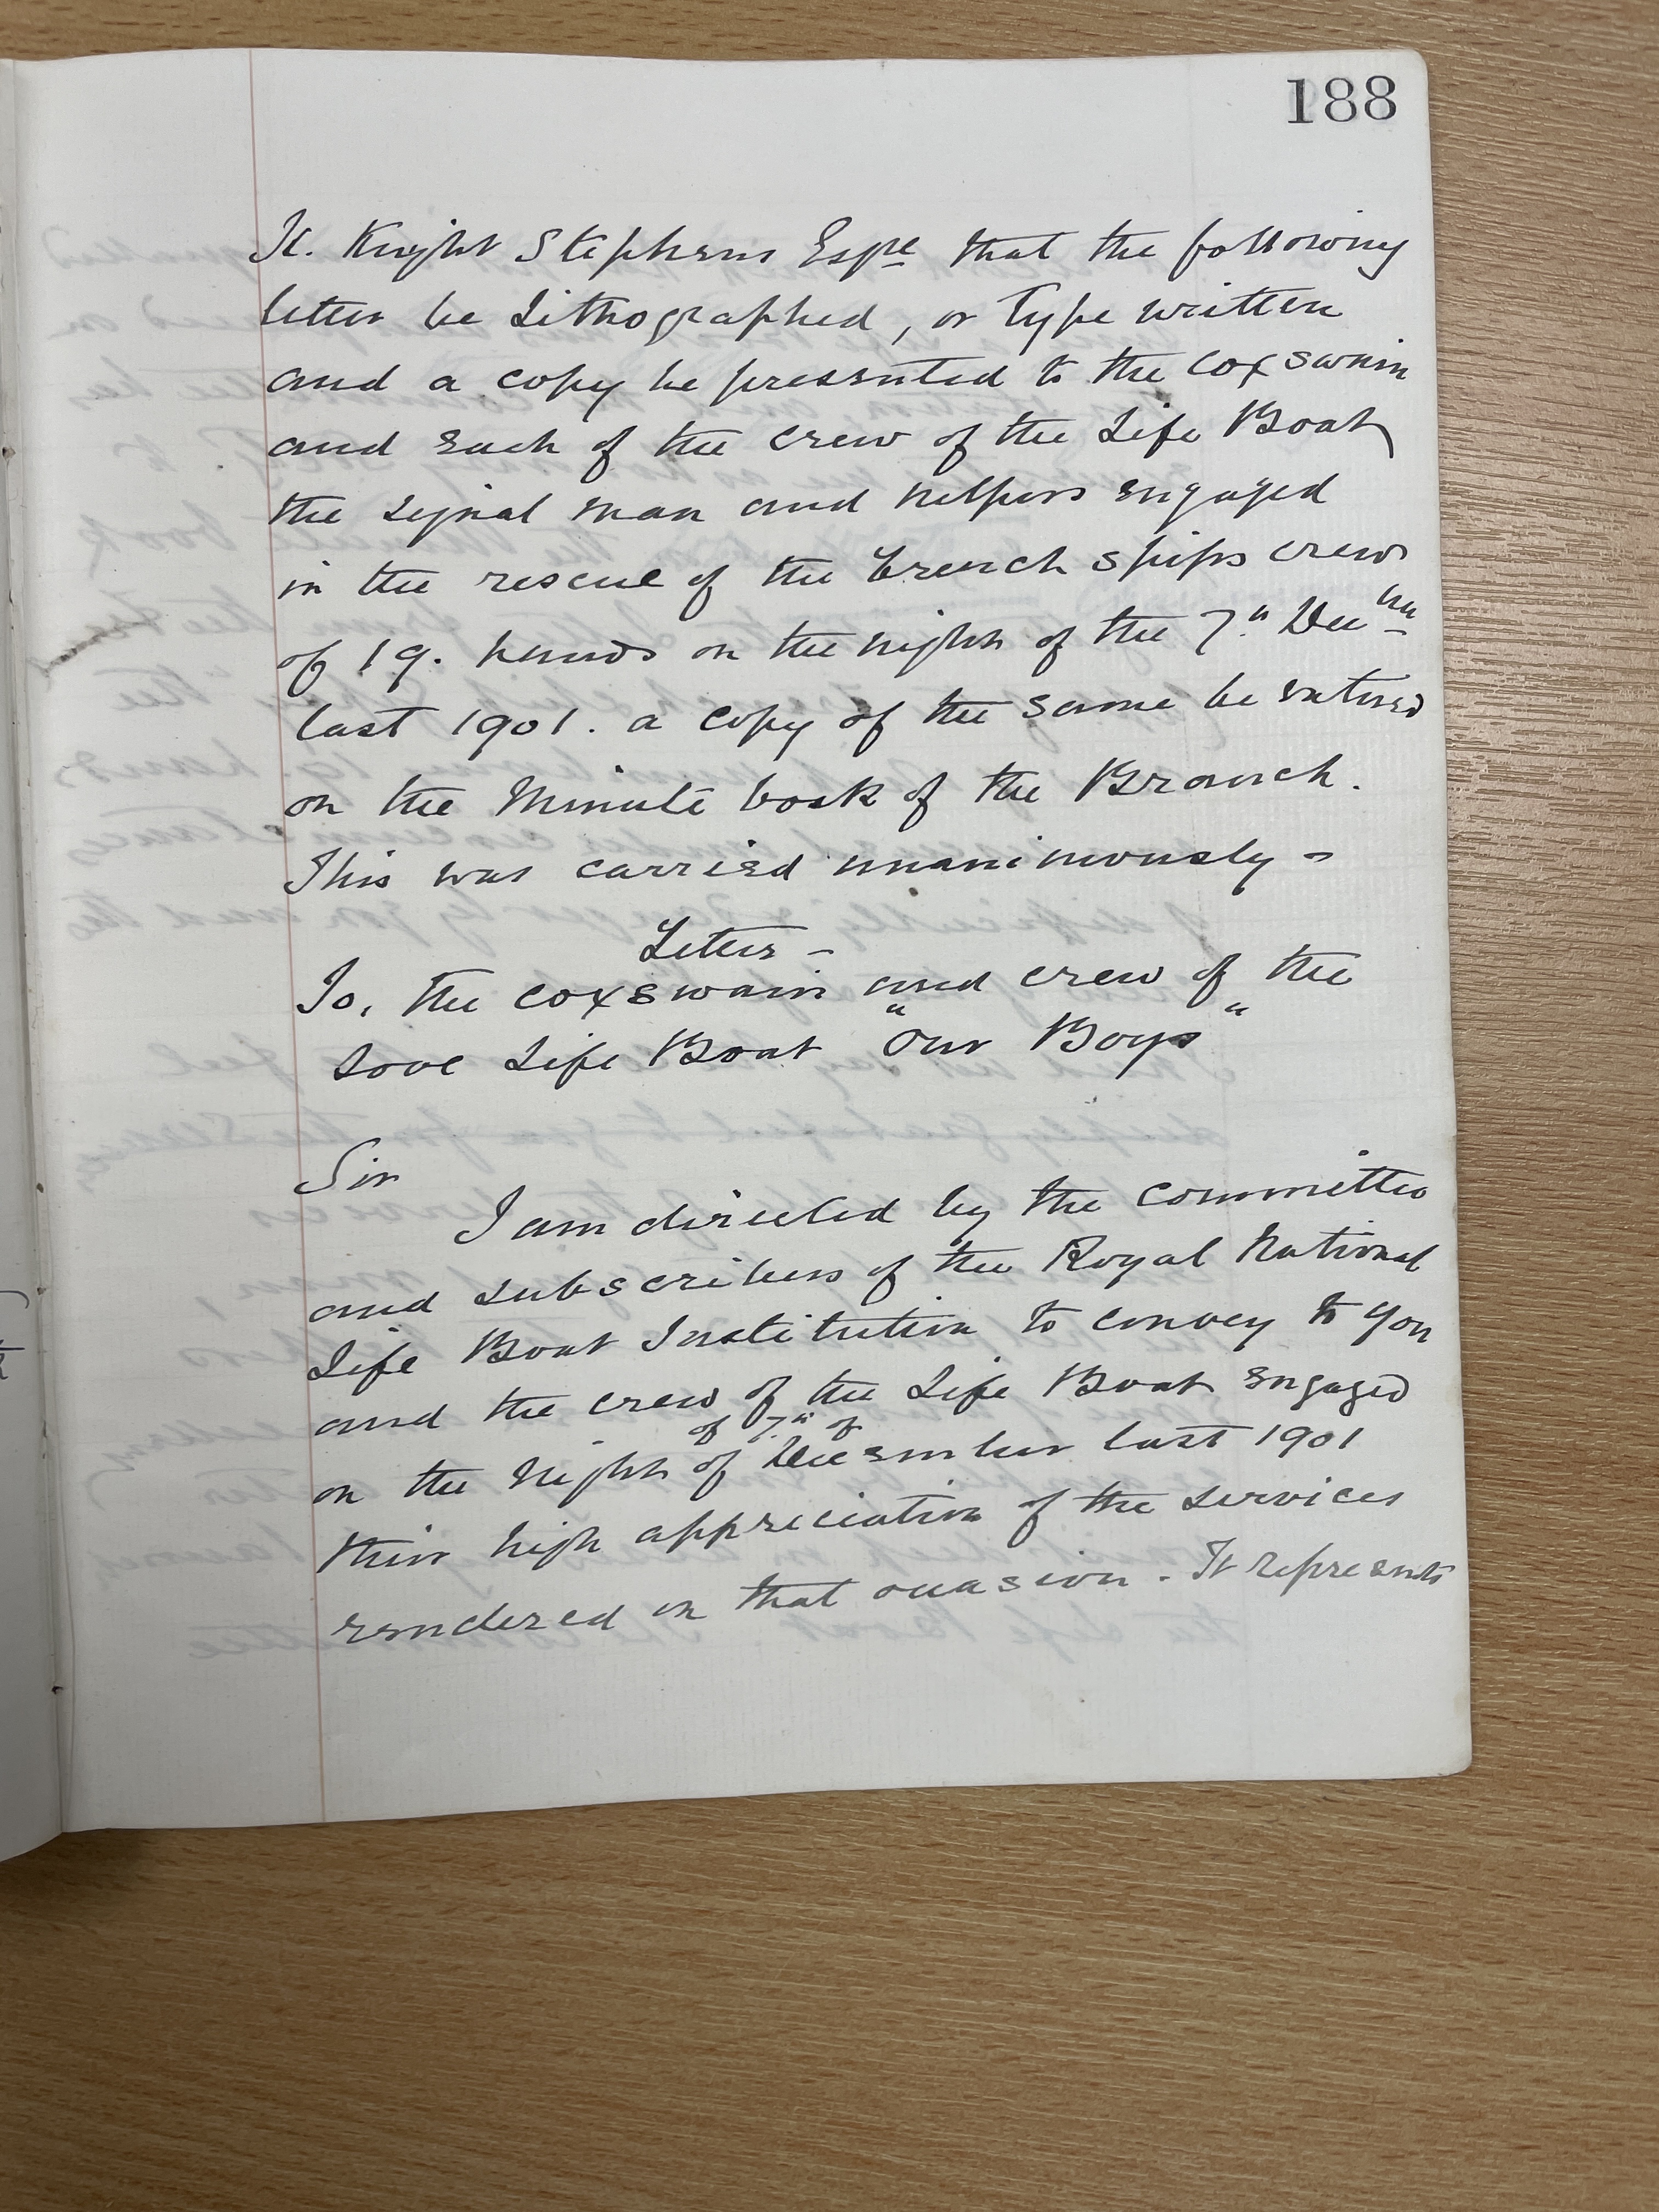 188
H. Knight Stephens Esqre that the following
letter be Lithographed, or Type written
and a copy be presented to the coxswain
and each of the crew of the Life Boat
the signal man and helpers engaged
in the rescue of the French ships crew
of 19. hands on the night of the 7th Decbr
last 1901. a copy of the same be entered
on the Minute book of the Branch.
This was carried unanimously -
Letter -
To, the coxswain and crew of the
Looe Life Boat "Our Boys"
Sir
I am directed by the committee
and subscribers of the Royal National
Life Boat Institution to convey to you
and the crew of the Life Boat engaged
of 7th of
on the night of December last 1901
their high appreciation of the services
rendered on that occasion. It represents